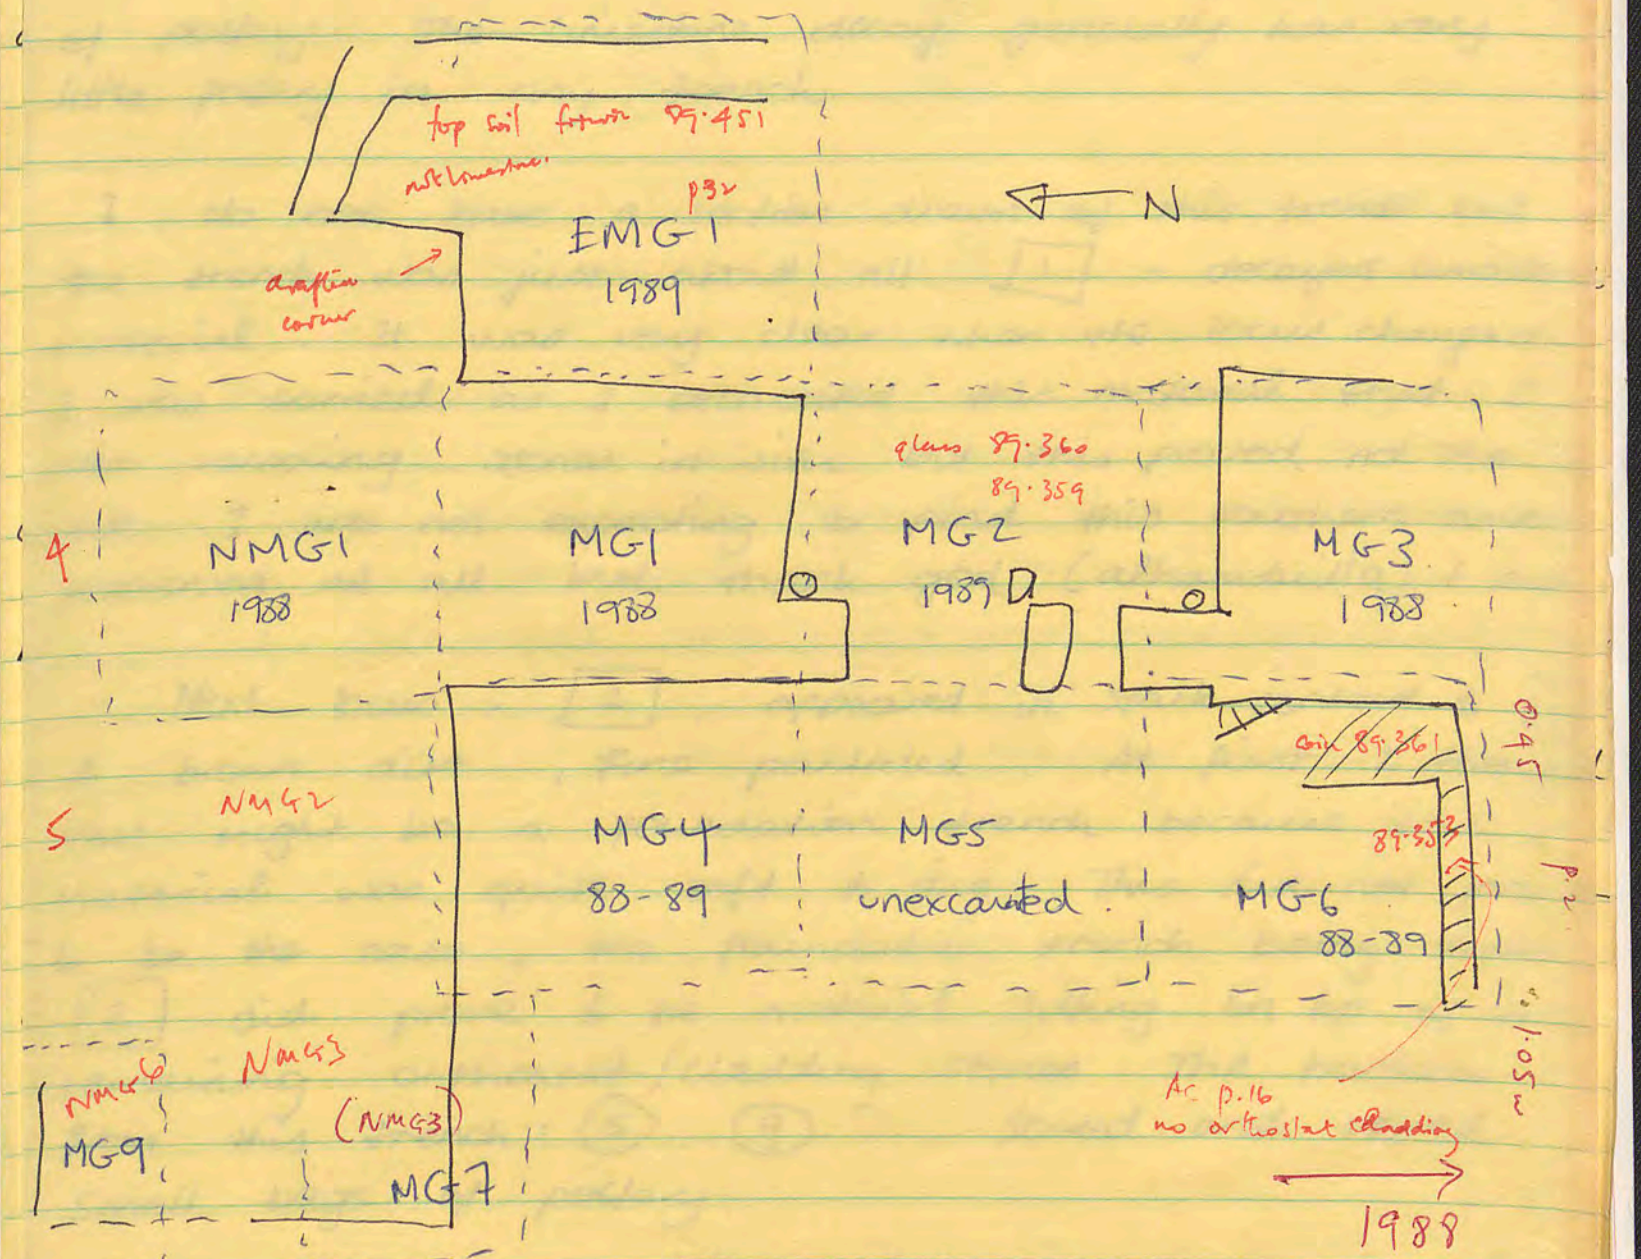 top soil 89.451
not limestone.
p32
EMG1
1989
N
corner
glass 89.360
89.359
4
NMG1
1988
MG1
1988
MG2
1989
MG3
1988
0.45
coin 89.361
5
NMG2
MG4
88-89
MG5
unexcavated.
89.353
MG6
88-89
p.2
1.05m
NMG6
NMG3
(NMG3)
MG9
MG7
Ac p.16
no orthostat cladding
1988